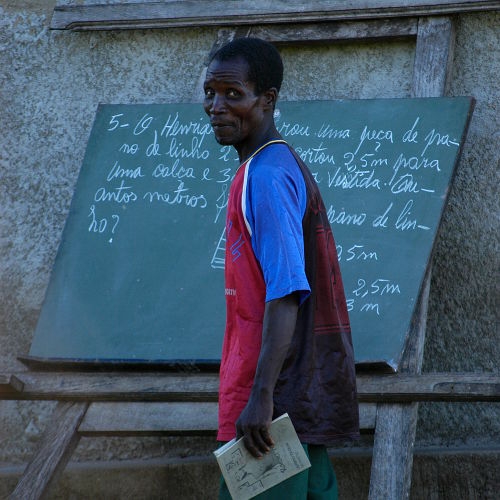 5- O Henriq rou uma peça de pa-
no de linho 2 ortou 2,5m para
uma calça e 3 Vestida. Qu-
antos metros pano de lin-
ho?
5m
2,5m
3 m